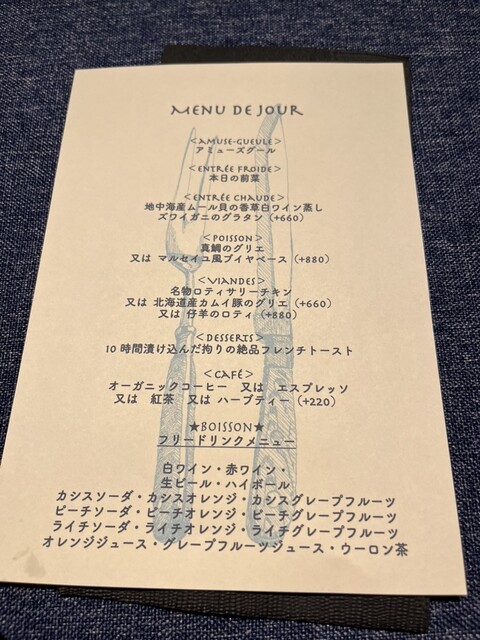 MENU DE JOUR
<AMUSE-GUEULE>
アミューズグール
<ENTRÉE FROIDE>
本日の前菜
<ENTRÉE CHAUDE>
地中海産ムール貝の香草白ワイン蒸し
ズワイガニのグラタン（+660）
<POISSON>
真鯛のグリエ
又は マルセイユ風ブイヤベース（+880）
<VIANDES>
名物ロティサリーチキン
又は 北海道産カムイ豚のグリエ（+660）
又は 仔羊のロティ（+880）
<DESSERTS>
10 時間漬け込んだ拘りの絶品フレンチトースト
<CAFÉ>
オーガニックコーヒー 又は エスプレッソ
又は 紅茶 又は ハーブティー（+220）
★BOISSON★
フリードリンクメニュー
白ワイン・赤ワイン・
生ビール・ハイボール
カシスソーダ・カシスオレンジ・カシスグレープフルーツ
ピーチソーダ・ピーチオレンジ・ピーチグレープフルーツ
ライチソーダ・ライチオレンジ・ライチグレープフルーツ
オレンジジュース・グレープフルーツジュース・ウーロン茶